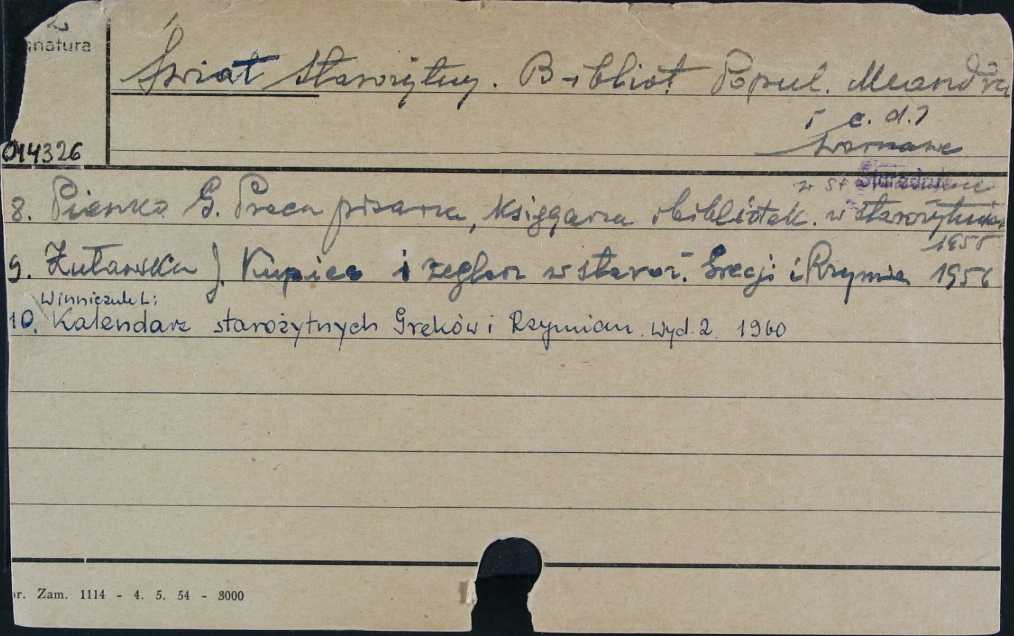 natura
Świat starożytny. Bibliot. Popul. Meandra
c. d.
Warszawa
014326
8. Pianko G. Praca pisarza, księgarza i bibliotek. w starożytn.
1955
9. Żuławska J. Kupiec i żeglarz w staroż. Grecji i Rzymie 1956
Winniczuk L:
10. Kalendarz starożytnych Greków i Rzymian. wyd. 2. 1960
r. Zam. 1114 - 4. 5. 54 - 3000